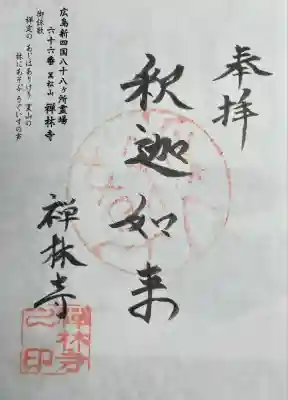 奉拝
釈迦如来
禅林寺
広島新四国八十八ヶ所霊場
六十六番 萬松山 禅林寺
御詠歌
禅定の あじはありけり 里山の
林にあそぶ うぐいすの声
禅林寺之印